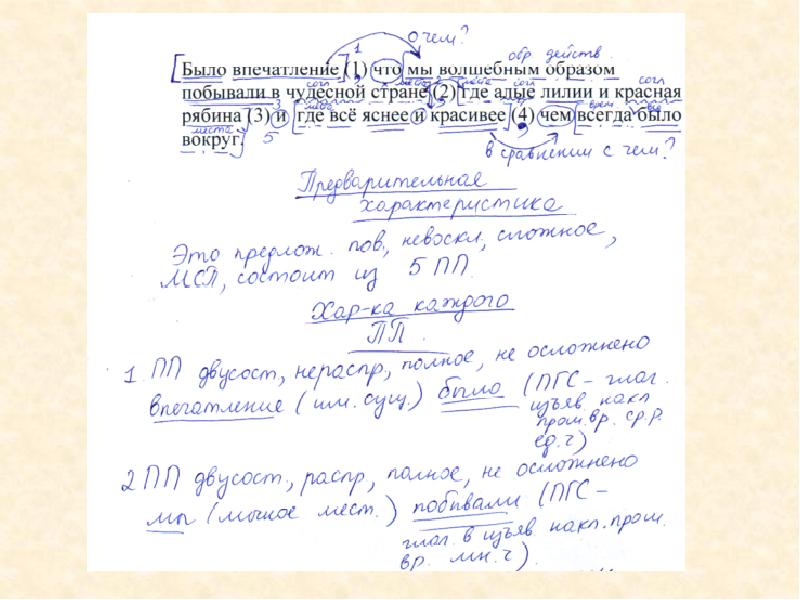 о чем?
1
обр. действ.
[Было впечатление] (1) что [мы волшебным образом
согл согл согл
побывали в чудесной стране] (2) [где алые лилии и красная
рябина] (3) и [где всё яснее и красивее] (4) чем [всегда было
места
вокруг.]
5
в сравнении с чем?
Предварительная
характеристика
Это предлож. пов, невоскл, сложное,
МСП, состоит из 5 ПП.
Хар-ка каждого
ПП.
1 ПП двусост, нераспр, полное, не осложнено
впечатление (им. сущ.) было (ПГС - глаг.
изъяв. накл.
прош. вр. ср.р.
ед.ч)
2 ПП двусост., распр, полное, не осложнено
мы (личное мест.) побывали (ПГС -
глаг. в изъяв накл. прош.
вр. мн. ч).